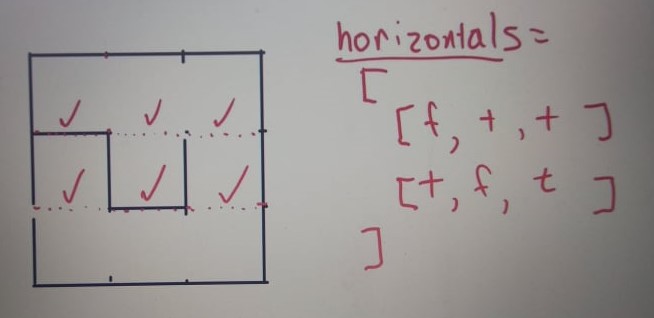 horizontals =
[
[f, t, t]
[t, f, t]
]